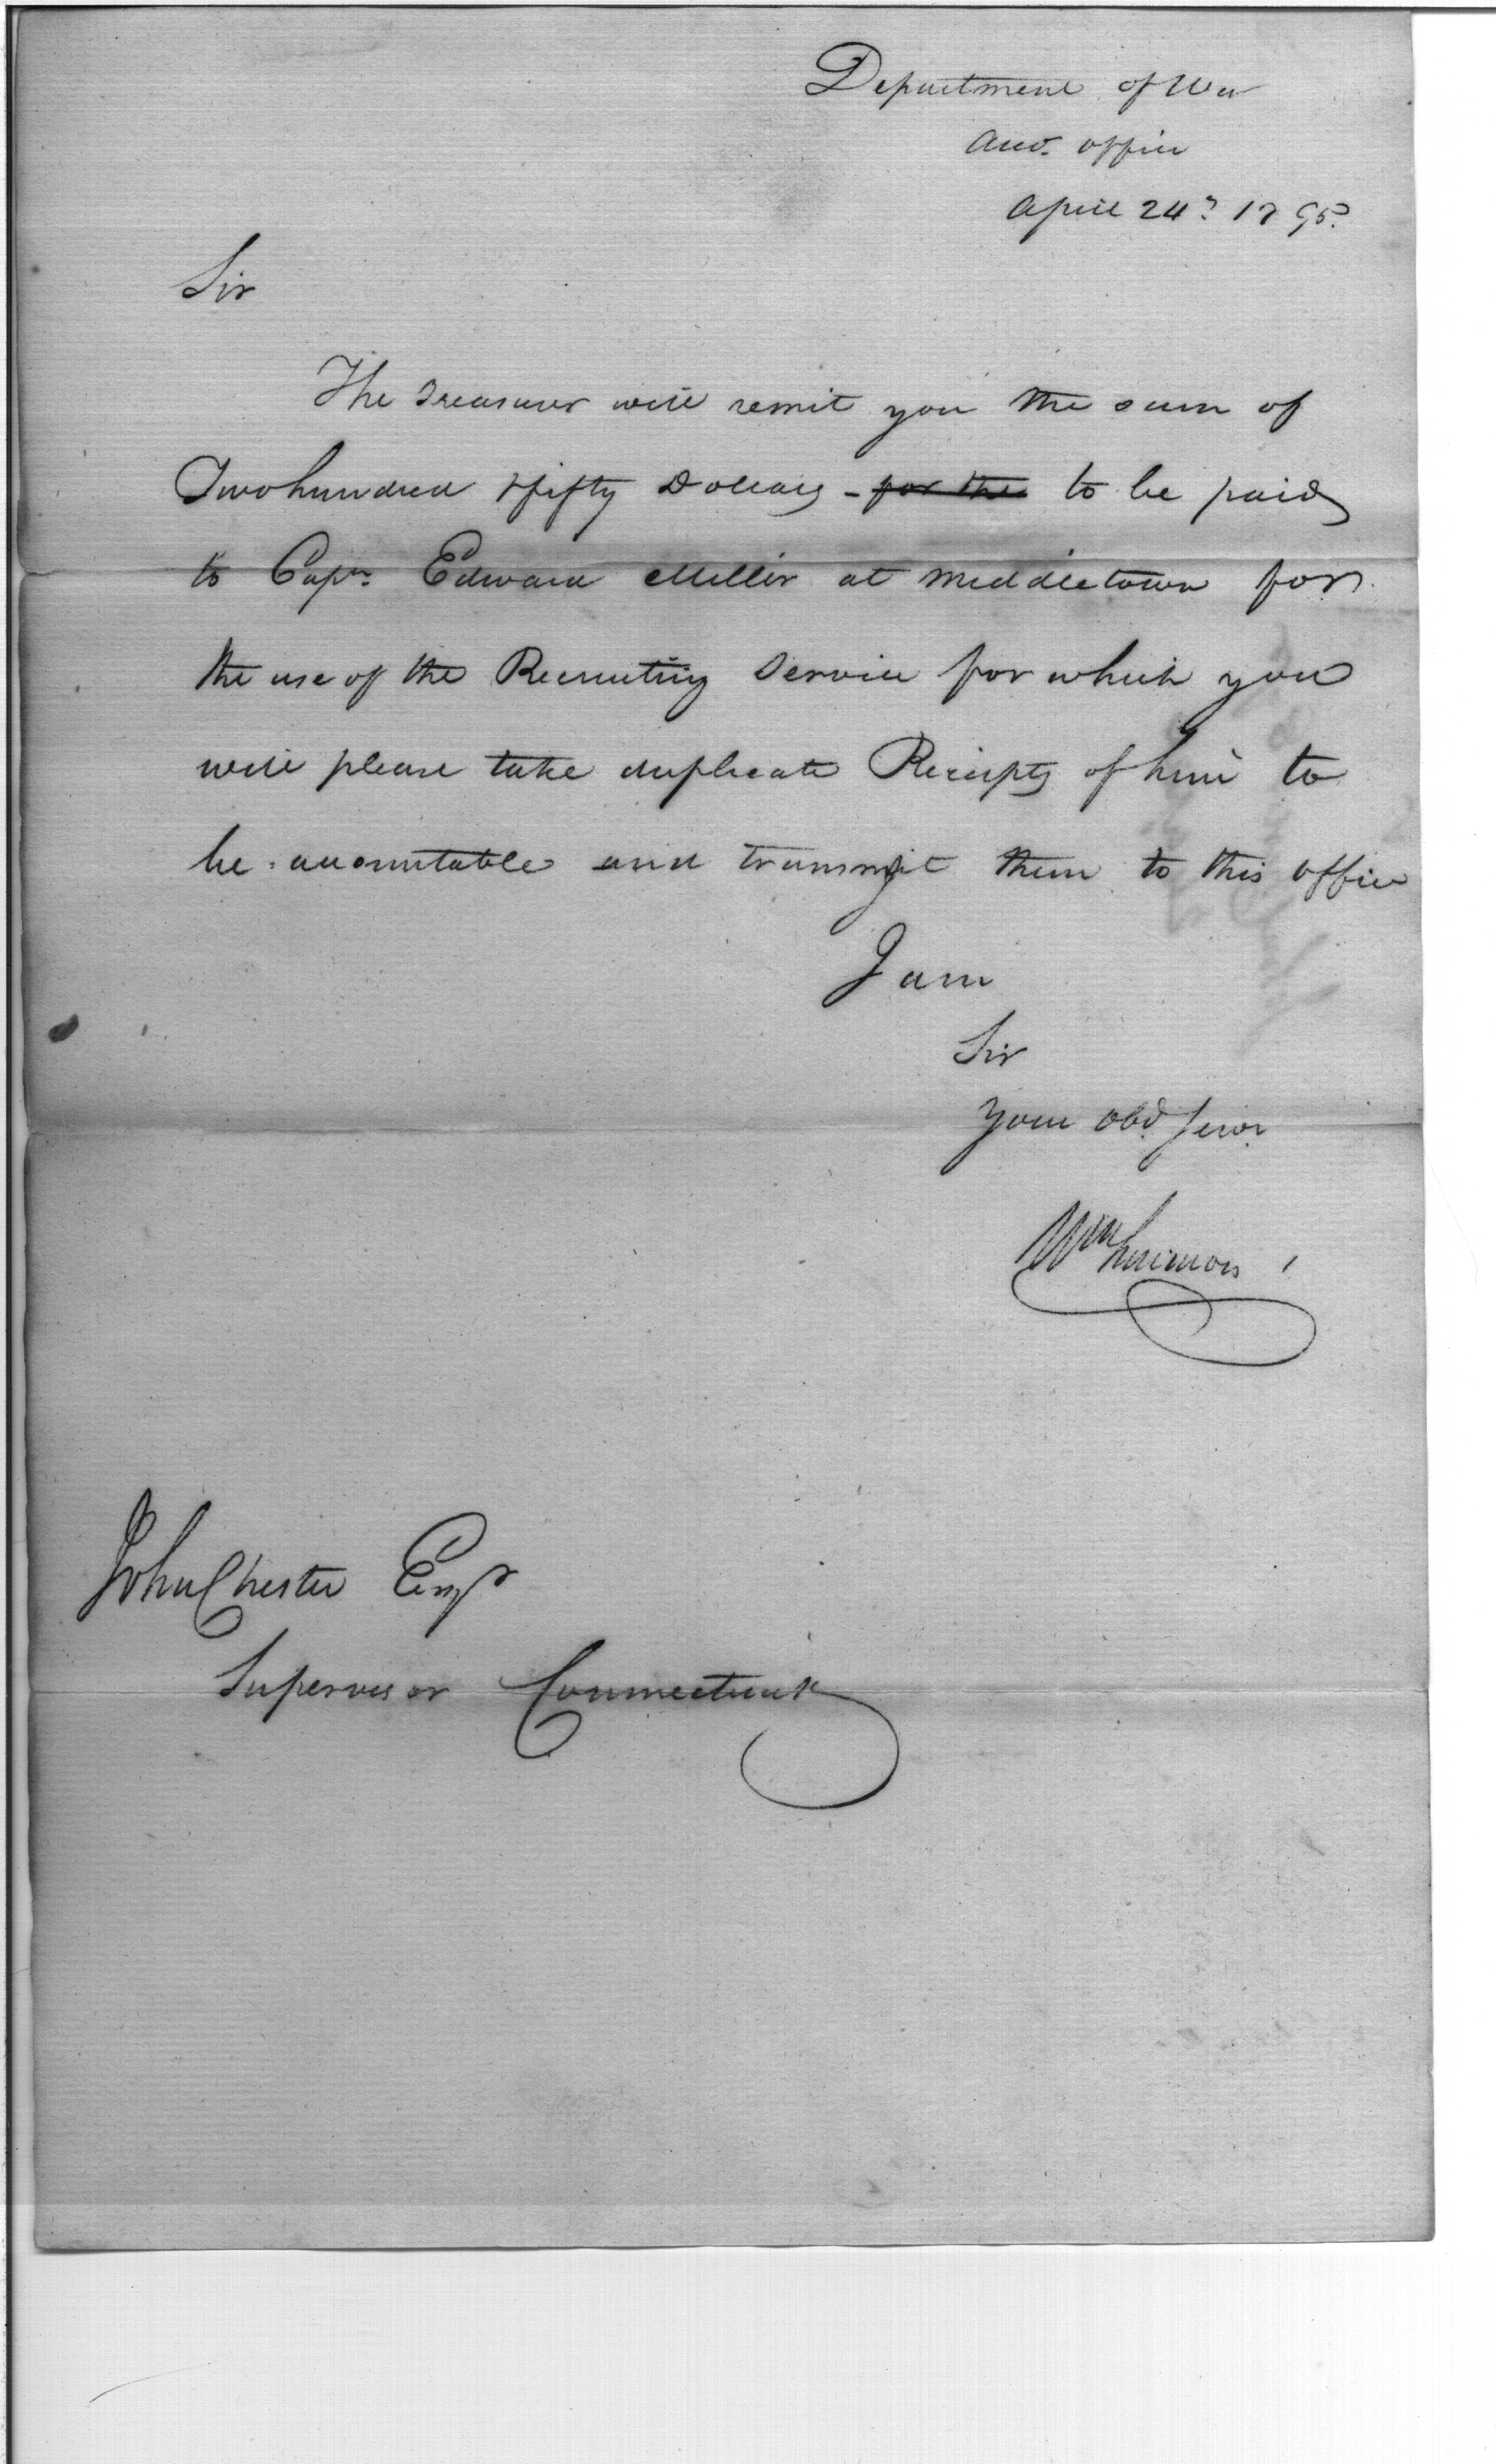 Department of War
Acco. office
April 24th 1795.
Sir
The Treasurer will remit you the sum of
Two hundred & fifty Dollars - for the to be paid
to Capn. Edward Miller at Middletown for
the use of the Recruiting Service for which you
will please take duplicate Receipts of him to
be accountable and transmit them to this office
I am
Sir
Your Obd. Servt.
Wm Simmons
John Chester Esqr
Supervisor Connecticut